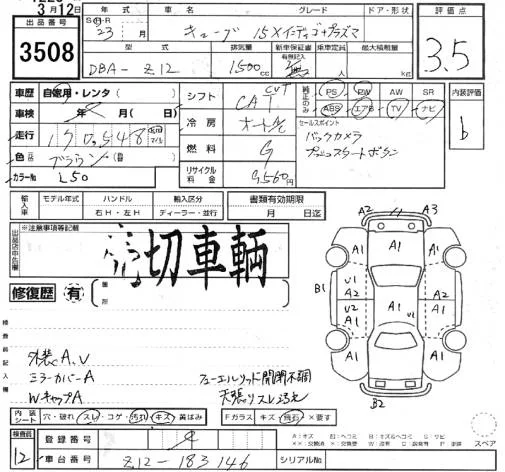 3月12日
出品番号
3508
年式 車名 グレード ドア・形状
S・H・R
23 月 キューブ 15Xインディゴ+プラズマ
型式 排気量 新車保証書 乗車定員 最大積載量
有限記入
DBA- Z12 1500cc 無 人 kg
評価点
3.5
車歴 自家用・レンタ
車検 年 ( 月 日)
走行 170,548 km マイル
色 ブラウン
カラーNo L50
シフト CVT CAT
冷房 オートA/C
燃料 G
リサイクル料金 9,560円
純正のみ PS PW AW SR
ABS エアB TV ナビ
セールスポイント
バックカメラ
プッシュスタートボタン
内装評価
b
輸入車 モデル年式 ハンドル 輸入区分 書類有効期限
年 右H・左H ディーラー・並行 月 日迄
出品店申告欄
※注意事項等記載
切車輌
修復歴 有
箇所
検査員記入欄
外装A、U
ミラーカバーA
WキャップA
フューエルリッド開閉不調
天張りスレ汚れ
A2 A3
A1 A1 A1
U1 A2
B1 A1 A2
U2 A1
U1
A1 A1 A1
B2
内装シート 穴・破れ・スレ・コゲ・汚れ・キズ・黄ばみ
Fガラス キズ・飛石・×要す
スペア
A:キズ U:ヘコミ B:キズ&ヘコミ S:サビ
検査員
12
登録番号
車台番号 Z12-183146
シリアルNo.